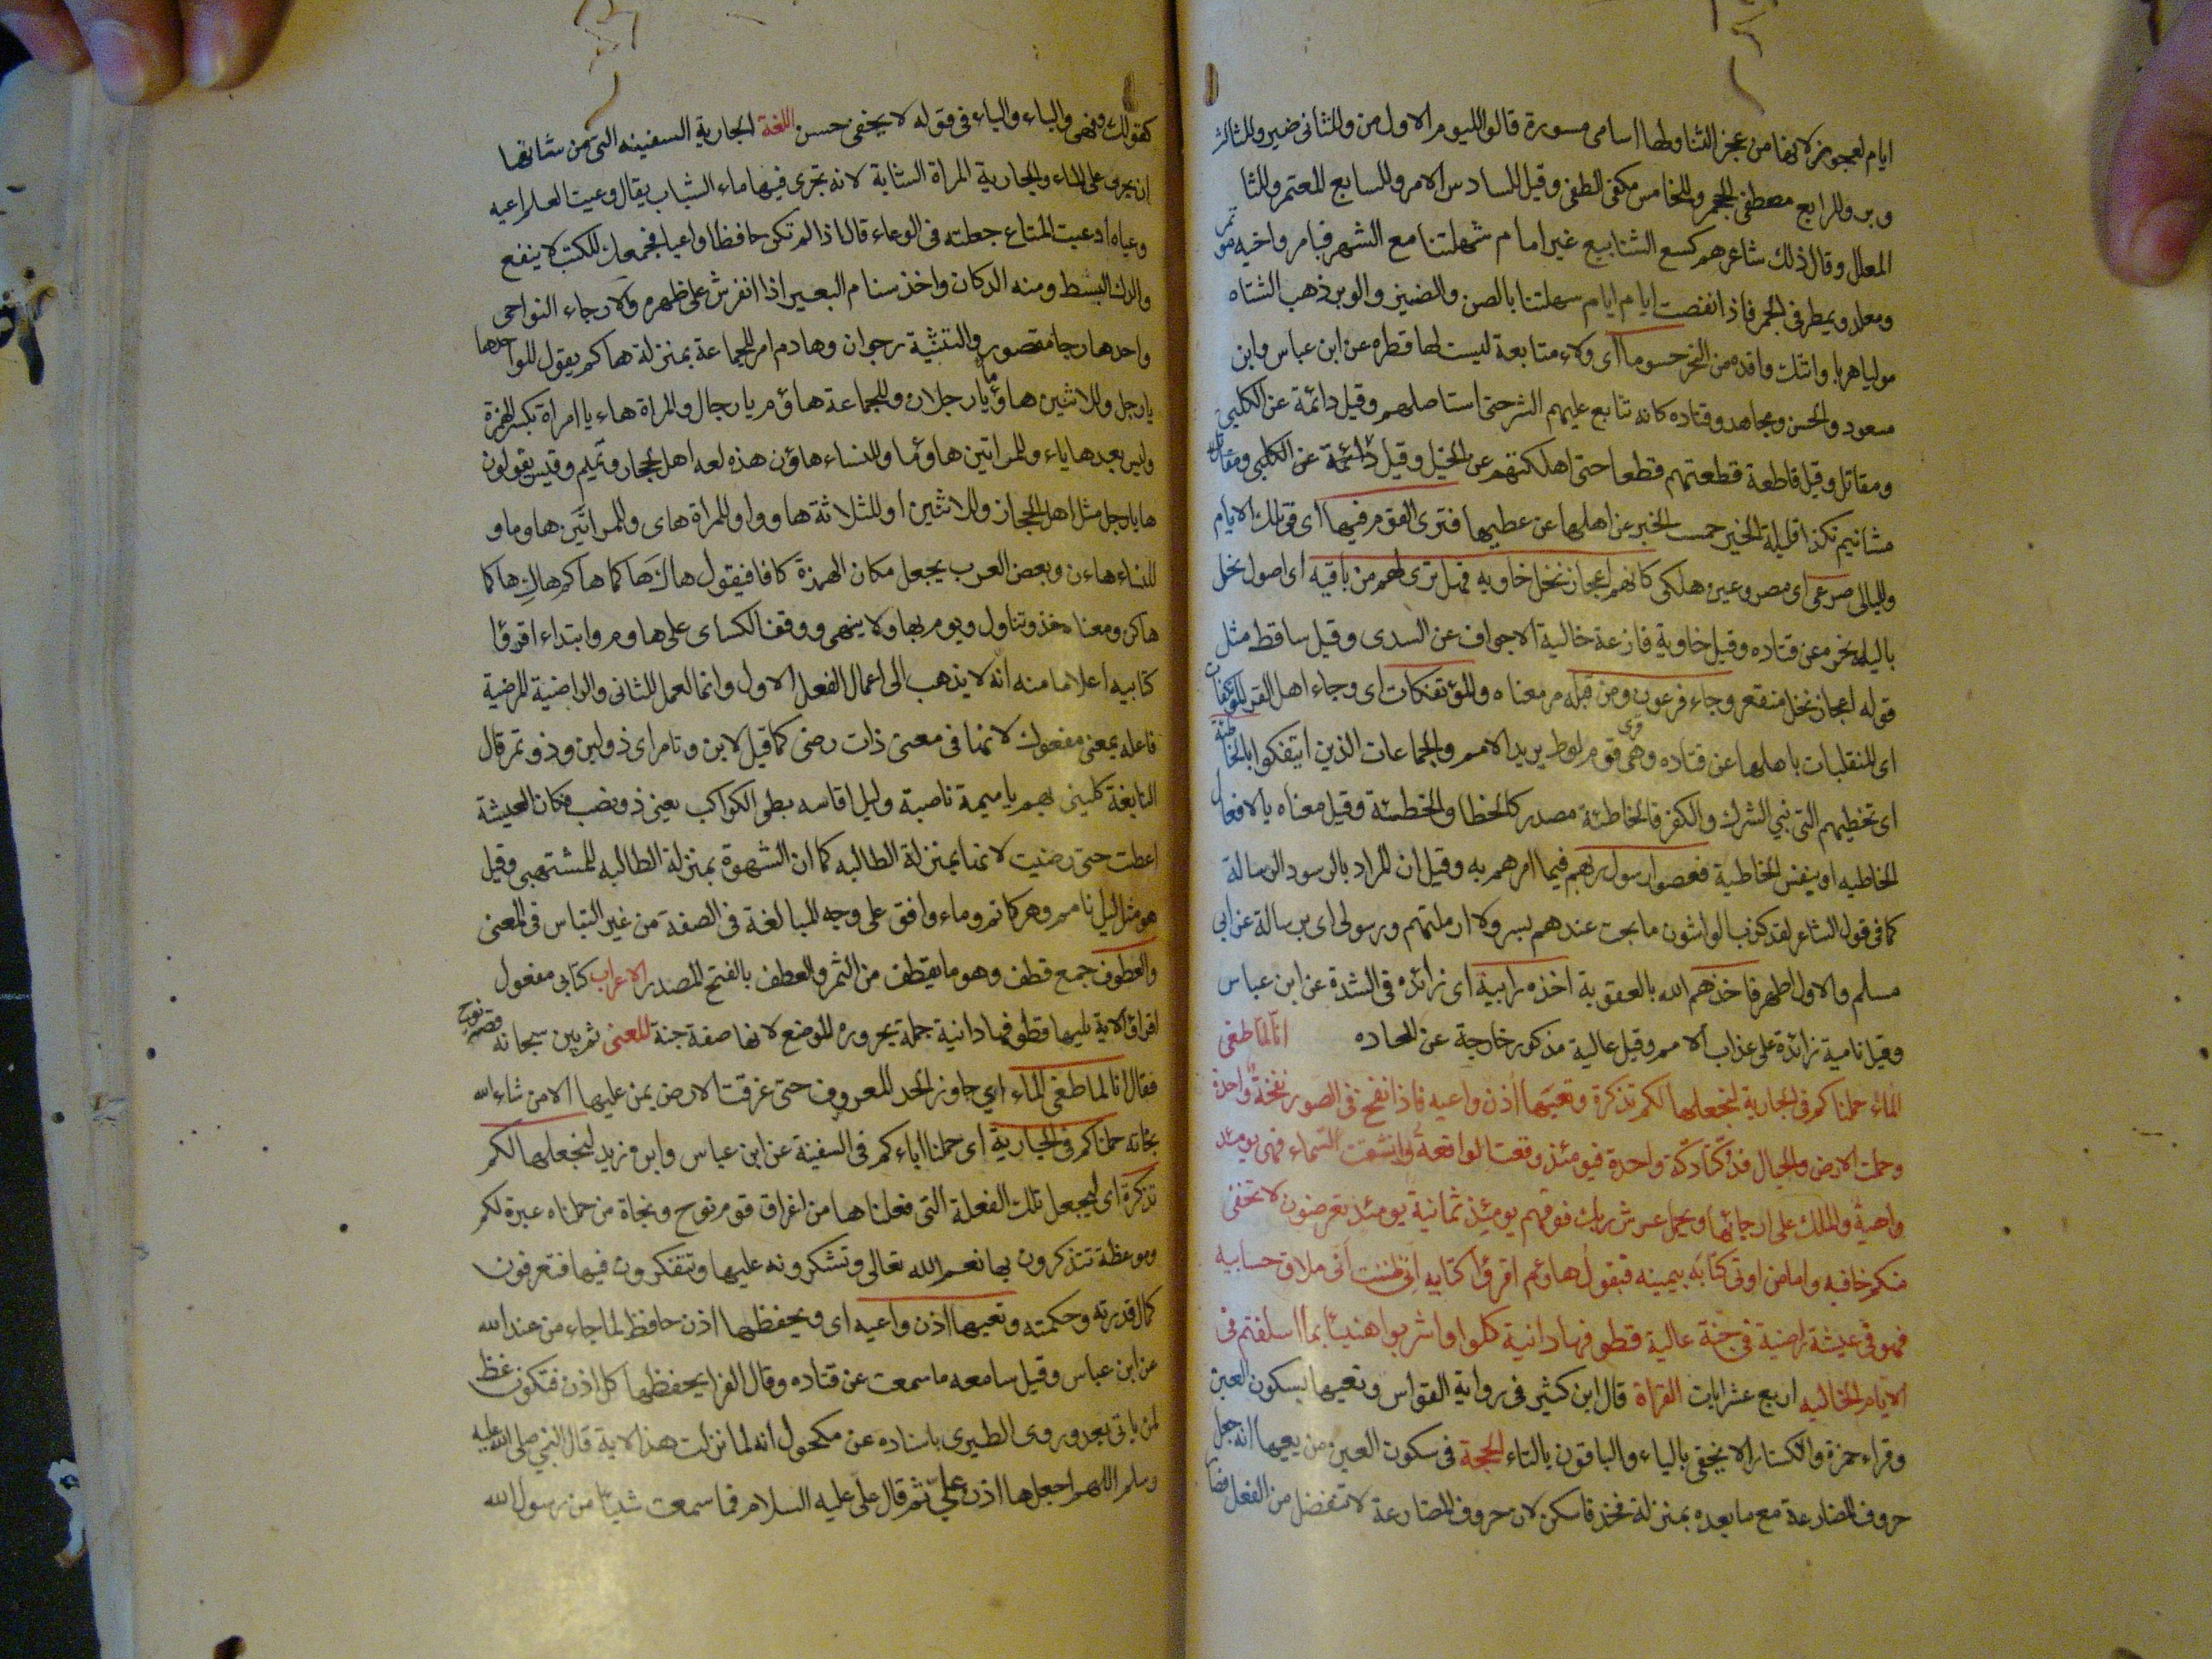 ايام لعجوز لانها من عجز الشتا ولها اسامى مسورة قالوا لليوم الاول من وللثانى ضبر وللثالث
وبر وللرابع مصطفى الجمر وللخامس مكفى الظفى وقيل للسادس الامر وللسابع المعتمر وللثا
المعلل وقال ذلك شاعرهم كسع الشتا بيع غير امام شهلتنا مع الشهر فبامر واخيه موتمر
ومعلل ويطر فى الجمر فاذا انفضت ايام ايام سهلتنا بالصن والضبر والوبر ذهب الشتاه
موليا هربا واتتك واقده من النخر حسوما اى ولاء متابعة ليست لها قطره عن ابن عباس وابن
مسعود والحسن ومجاهد وقتاده كانه تتابع عليهم الشر حتى استاصلهم وقيل دائمة عن الكلبى
ومقاتل وقيل قاطعة قطعتهم قطعا حتى اهلكتهم عن الخيل وقيل دائمة عن الكلبى ومقاتل
مشائيم نكذا قليلة الخير حمست الخبر عن اهلها عن عطيها فترى القوم فيها اى فى تلك الايام
والليالى صرعى اى مصروعين وهلكى كانهم اعجاز نخل خاويه فهل ترى لهم من باقيه اى اصول نخل
باليله نخر معن قتاده وقيل خاوية فازعة خالية الاجواف عن السدى وقيل ساقط مثل
قوله اعجاز نخل منقعر وجاء فرعون ومن قبله مر معناه والمؤتفكات اى وجاء اهل القرى المؤتفكات
اى المنقلبات باهلها عن قتاده وهى قرى قوم لوط يريد الامم والجماعات الذين ايتفكوا بالخاطئة
اى تخطيهم التى هى الشرك والكفر فالخاطئة مصدر كالخطا والخطئة وقيل معناه بالافعال
الخاطيه او بنفس الخاطية فعصوا رسول ربهم فيما امرهم به وقيل ان المراد بالرسول الرسالة
كما فى قول الشاعر لقد كذب الواشون ما بحت عندهم بسر ولا ارسلتهم ورسولى اى برسالة عن ابى
مسلم والاول اظهر فاخذهم الله بالعقوبة اخذه رابية اى زائده فى الشدة عن ابن عباس
وقيل نامية زائدة على عذاب الامم وقيل عالية مذكور خارجة عن العاده انا لما طغى
الماء حملناكم فى الجارية لنجعلها لكم تذكرة وتعيها اذن واعيه فاذا نفخ فى الصور نفخة واحدة
وحملت الارض والجبال فدكتا دكة واحدة فيومئذ وقعت الواقعة وانشقت السماء فهى يومئذ
واهية والملك على ارجائها ويحمل عرش ربك فوقهم يومئذ ثمانية يومئذ تعرضون لا تخفى
منكم خافيه واما من اوتى كتابه بيمينه فيقول هاؤم اقرؤا كتابيه انى ظننت انى ملاق حسابيه
فهو فى عيشة راضية فى جنة عالية قطوفها دانية كلوا واشربوا هنيئا بما اسلفتم فى
الايام الخاليه اربع عشرايات القراة قال ابن كثير فى رواية القواس وتعيها بسكون العين
وقراء حمزة والكسائى لا يخفى بالياء والباقون بالتاء الحجة فى سكون العين ومن يعيها انه جعل
حروف المضارعة مع ما بعده بمنزلة فخذ فاسكن لان حروف المضارعة لا تنفصل من الفعل فصار
كقولك وفهى والباء والياء فى قوله لا يخفى حسن اللغة الجارية السفينه التى من شانها
ان يجرى على الماء والجارية المراة الشابة لانه تجرى فيها ماء الشباب يقال وعيت العلم اعيه
وعياه اوعيت المتاع جعلته فى الوعاء قال اذا لم تكن حافظا واعيا فجمعك للكتب لا ينفع
والدك البسط ومنه الدكان واخذ سنام البعير اذا انفرش على ظهره والارجاء النواحى
واحدها رجا مقصور والتثنية رجوان وهاوم امر للجماعة بمنزلة هاكم يقول للواحدها
يا رجل وللاثنين هاؤما يا رجلان وللجماعة هاؤم يا رجال وللمراة هاء يا امراة بكسر الهمزة
وليس بعدها ياء وللمراتين هاؤما وللنساء هاؤن هذه لغه اهل الحجاز وتميم وقيس يقولون
ها يا رجل مثل اهل الحجاز وللاثنين او للثلاثة هاووا وللمراة هاى وللمراتين هاوما و
للنساء هاءن وبعض العرب يجعل مكان الهمزة كافا فيقول هاك هاكما هاكم هاك هاكما
هاكن ومعناه خذ وتناول ويومر بها ولا ينهى ووقف الكساى على هاوم وابتداء اقرؤا
كتابيه اعلاما منه انه لا يذهب الى اعمال الفعل الاول وانما العمل للثانى والراضية المرضية
فاعله بمعنى مفعول لانها فى معنى ذات رضى كما قيل لابن وتامر اى ذو لبن وذو تمر قال
النابغة كلينى لهم يا ميمة ناصبة وليل اقاسه بطى الكواكب يعنى ذو نصب فكان العيشة
اعطت حتى رضيت لانها بمنزلة الطالبه كما ان الشهوة بمنزلة الطالبه للمشتهى وقيل
هو مثل ليل نامم وهركاتم وماء وافق على وجه المبالغة فى الصفة من غير التباس فى المعنى
والقطوف جمع قطف وهو ما يقطف من الثمر والعطف بالفتح المصدر الاعراب كتابى مفعول
اقرؤا لاية يليها قطوفها دانية جملة مجروره الموضع لانها صفة جنة المعنى ثم بين سبحانه قصة نوح
فقال انا لما طغى الماء اي جاوز الحد المعروف حتى غرقت الارض بمن عليها الا من شاء الله
نجاته حملناكم فى الجارية اى حملنا اباءكم فى السفينة عن ابن عباس وابن زيد لنجعلها لكم
تذكرة اى لنجعل تلك الفعلة التى فعلناها من اغراق قوم نوح ونجاة من حملناه عبرة لكم
وموعظة تتذكرون بها نعم الله تعالى وتشكرونه عليها وتتفكرون فيها فتعرفون
كمال قدرته وحكمته وتعيها اذن واعيه اى ويحفظها اذن حافظ لما جاء من عند الله
عن ابن عباس وقيل سامعه ما سمعت عن قتاده وقال الفرا يحفظها كل اذن فتكون عظ
لمن ياتى بعد وروى الطبرى باسناده عن مكحول انه لما نزلت هذا الاية قال النبى صلى الله عليه
وسلم اللهم اجعلها اذن على ثم قال على عليه السلام فما سمعت شيئا من رسول الله